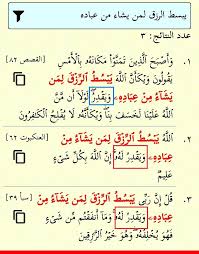 يبسط الرزق لمن يشاء من عباده
عدد النتائج: ٣
١. وَأَصْبَحَ الَّذِينَ تَمَنَّوْا مَكَانَهُ بِالْأَمْسِ [القصص ٨٢]
يَقُولُونَ وَيْكَأَنَّ اللَّهَ يَبْسُطُ الرِّزْقَ لِمَن
يَشَاءُ مِنْ عِبَادِهِ وَيَقْدِرُ لَوْلَا أَن مَّنَّ
اللَّهُ عَلَيْنَا لَخَسَفَ بِنَا وَيْكَأَنَّهُ لَا يُفْلِحُ الْكَافِرُونَ
٢. اللَّهُ يَبْسُطُ الرِّزْقَ لِمَن يَشَاءُ مِنْ [العنكبوت ٦٢]
عِبَادِهِ وَيَقْدِرُ لَهُ إِنَّ اللَّهَ بِكُلِّ شَيْءٍ
عَلِيمٌ
٣. قُلْ إِنَّ رَبِّي يَبْسُطُ الرِّزْقَ لِمَن يَشَاءُ [سبأ ٣٩]
مِنْ عِبَادِهِ وَيَقْدِرُ لَهُ وَمَا أَنفَقْتُم مِّن شَيْءٍ
فَهُوَ يُخْلِفُهُ وَهُوَ خَيْرُ الرَّازِقِينَ